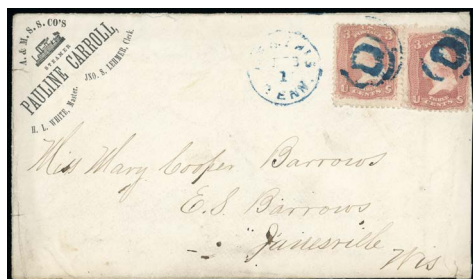 A. & M. S. S. CO'S
STEAMER
PAULINE CARROLL,
H. L. WHITE, Master. JNO. S. Clerk.
TENN.
3 3
U CENTS S
3 3
U CENTS S
Miss Mary Cooper Barrows
E.S. Barrows
Janesville
Wis